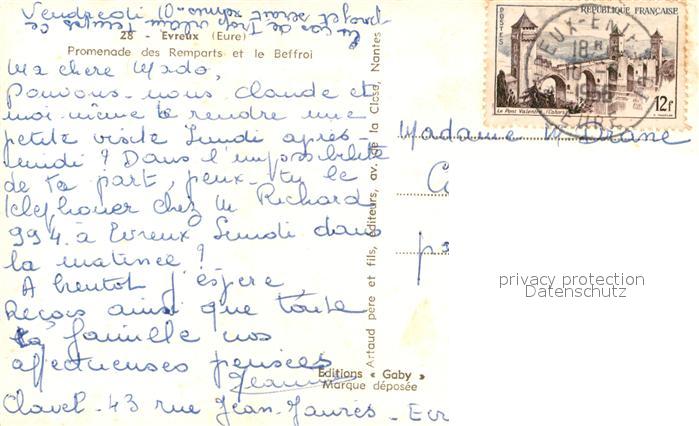 Vendredi
28 - Evreux (Eure)
Promenade des Remparts et le Beffroi
Ma chère Mado,
Pouvons-nous Claude et
moi-même te rendre une
petite visite Lundi après-
midi ? Dans l'impossibilité
de ta part, peux-tu le
téléphoner chez M Richard
994 à Evreux Lundi dans
la matinée ?
A bientôt j'espère
Reçois ainsi que toute
ta famille nos
affectueuses pensées
Jeanne
Clavel - 43 rue Jean-Jaurès - Evr
Artaud père et fils, éditeurs, av. de la Close, Nantes
Editions « Gaby »
Marque déposée
POSTES
REPUBLIQUE FRANÇAISE
Le Pont Valentré (Cahors)
12f
18H
1956
EURE
Madame M
privacy protection
Datenschutz